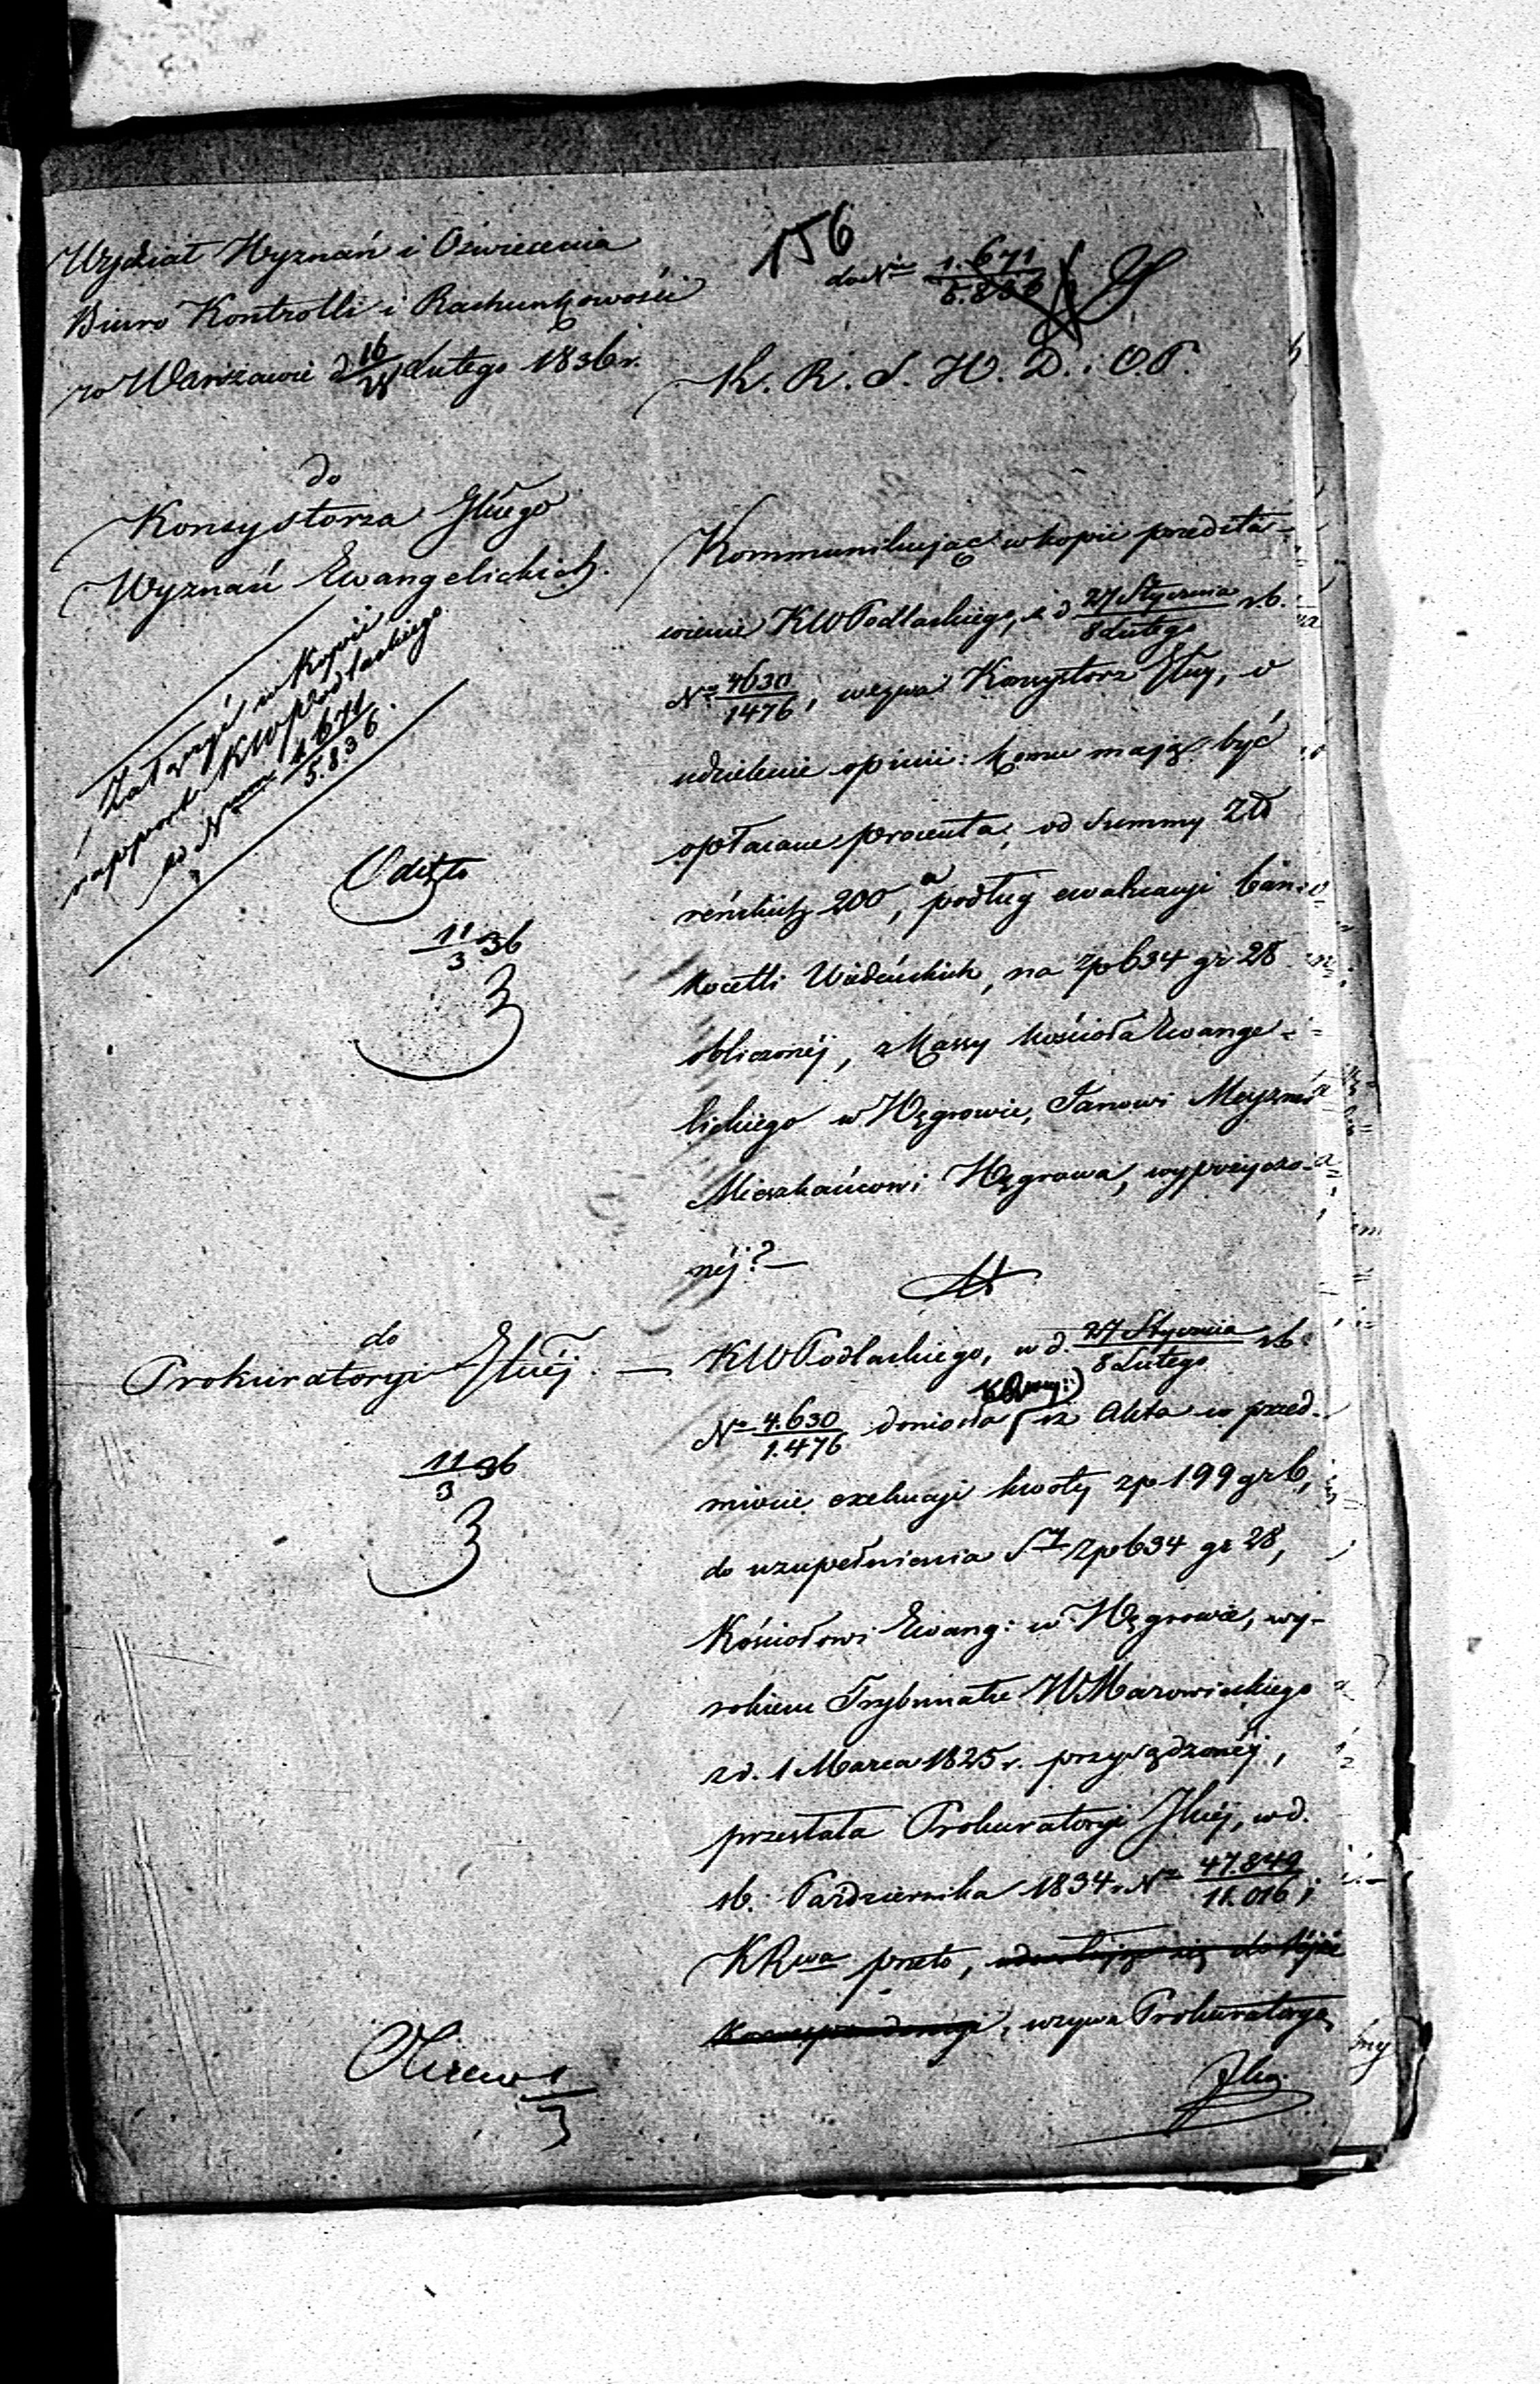 Wydział Wyznań i Oświecenia
Biuro Kontrolli i Rachunkowości
w Warszawie d 16/28 Lutego 1836 r.
156
do Nru 1.671/5.836
K. R. S. W. D. i O. P.
do
Konsystorza Głłuego
Wyznań Ewangelickich.
Załączyć w kopii
rapport KWPodlaskiego
do Nru 1.671/5.836.
Odeszło
11/3 36
Kommunikując w kopii przedsta-
wienie KWPodlaskiego, z d 27 Stycznia/8 Lutego r.b.
No 4630/1476, wzywa Konsystorz Głny, o
udzielenie opinii: komu mają być
opłacane procenta, od Summy Zł
reńskich 200, a podług ewaluacyi ban-
kocetli Wiedeńskich, na zp 634 gr 28
obliczonéj, z Massy Kościoła Ewange-
lickiego w Węgrowie, Janowi
Mieszkańcowi Węgrowa, wypożyczo-
néj?—
do
Prokuratoryi Głnéj. —
11/3 36
KWPodlaskiego, w d. 27 Stycznia/8 Lutego r.b.
No 4.630/1.476 doniosła iż Akta w przed-
miocie exekucyi kwoty zp 199 gr 6,
do uzupełnienia Sy Zp 634 gr 28,
Kościołowi Ewang: w Węgrowie, wy-
rokiem Trybunału WMazowieckiego
z d. 1 Marca 1825 r. przysądzonéj,
przesłała Prokuratoryi Głnéj, w d.
16. Października 1834 r. No 47.849/11.016;
KRwa przeto, odwołując się do téjże
Korrespondencyi, wzywa Prokuratoryę
Głną